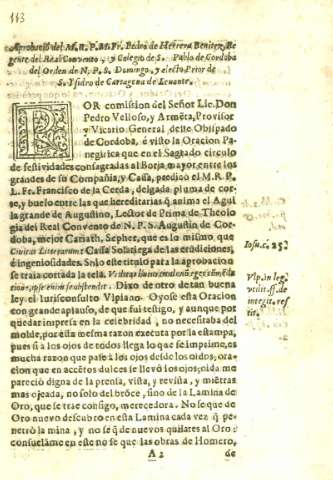 113
Aprobacion del M. R. P. M. Fr. Pedro de Herrera Benitez, Re
gente del Real Convento, y Colegio de S. Pablo de Cordoba
del Orden de N. P. S. Domingo, y electo Prior de
S. Ysidro de Cartagena de Levante.
POR comission del Señor Lic. Don
Pedro Velloso, y Armēta, Provisor
y Vicario General deste Obispado
de Cordoba, è visto la Oracion Pa-
negirica que en el Sagrado circulo
de festividades consagradas al Borja mayor entre los
grandes de su Compañia, y Casa, predicó el M. R. P.
L. Fr. Francisco de la Cerda, delgada pluma de cor-
te, y buelo entre las que hereditarias q̄ anima el Agui
la grande de Augustino, Lector de Prima de Theolo
gia del Real Convento de N. P. S. Augustin de Cor-
doba, mejor Cariath, Sepher, que es lo mismo que
Civitas Litterarum Casa Solariega de las erudiciones,
è ingeniosidades. Solo este titulo para la aprobacion
se traia cortada la tela.
Dixo de otro de tan buena
ley el Iurisconsulto Vlpiano. Oyose esta Oracion
con grande aplauso, de que fui testigo, y aunque por
quedar impresa en la celebridad, no necesitaba del
molde, por esta mesma razon executa por la estampa,
pues si a los ojos de todos llega lo que se imprime, es
mucha razon que pase à los ojos desde los oidos, ora
cion que en accētos dulces se llevó los ojos; oida me
pareció digna de la prensa, vista, y revista, y miētras
mas ojeada, no solo del brōce, sino de la Lamina de
Oro, que se trae consigo, merecedora. No se que de
Oro nuevo descubro en esta Lamina cada vez q̄ pe-
netrò la mina, y no se q̄ de nuevos quilates al Oro è
consuelame en este no se que las obras de Homero,
A 2 de
Iosu. c. 15.
Vlp. in leg.